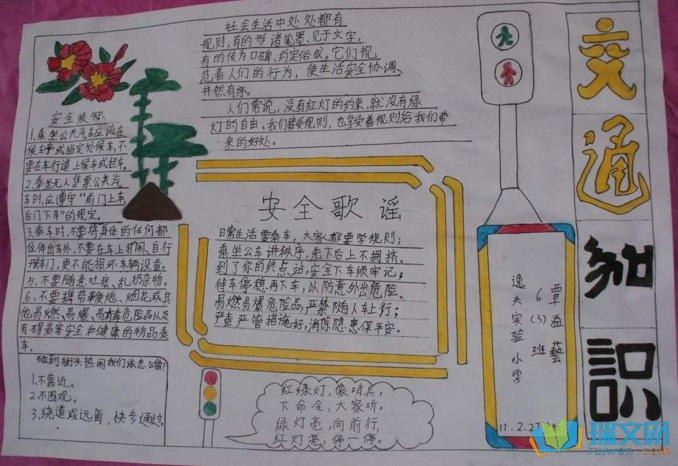 交通知识
社会生活中处处都有
规则,有的形诸笔墨、见于文字,
有的传为口碑、约定俗成。它们规
范着人们的行为,使生活安全协调、
井然有序。
人们常说,没有红灯的约束,就没有绿
灯的自由。我们接受规则,也享受着规则给我们带
来的好处。
安全须知
1.乘坐公共汽车应该在
候车亭或指定处候车,不
要在车行道上候车或拦车。
2.乘坐无人售票公共汽
车时,应遵守"前门上车,
后门下车"的规定。
3.乘车时,不要将身体的任何部
位伸出车外,不要在车上打闹、自行
开车门,更不能损坏车辆设备。
5.不要随意吐痰、乱扔杂物。
6.不要携带鞭炮、烟花或其
他易燃、易爆、有毒危险品以及
有碍乘客安全和健康的物品乘
车。
碰到街头热闹我们该怎么做
1.不靠近。
2.不围观。
3.绕道或远离,快步通过。
安全歌谣
日常生活要乘车,大家都要学规则;
乘坐公车讲秩序,先下后上不拥挤。
到了你的终点站,安全下车须牢记;
待车停稳再下车,以防意外出危险。
易燃易爆危险品,严禁随人车上行;
严查严管措施好,消除隐患保平安。
红绿灯,像哨兵,
下命令,大家听。
绿灯亮,向前行,
红灯亮,停一停。
逸夫实验小学
6(3)班
覃溢藝
11.2.27
瑞文网
ruiwen.com